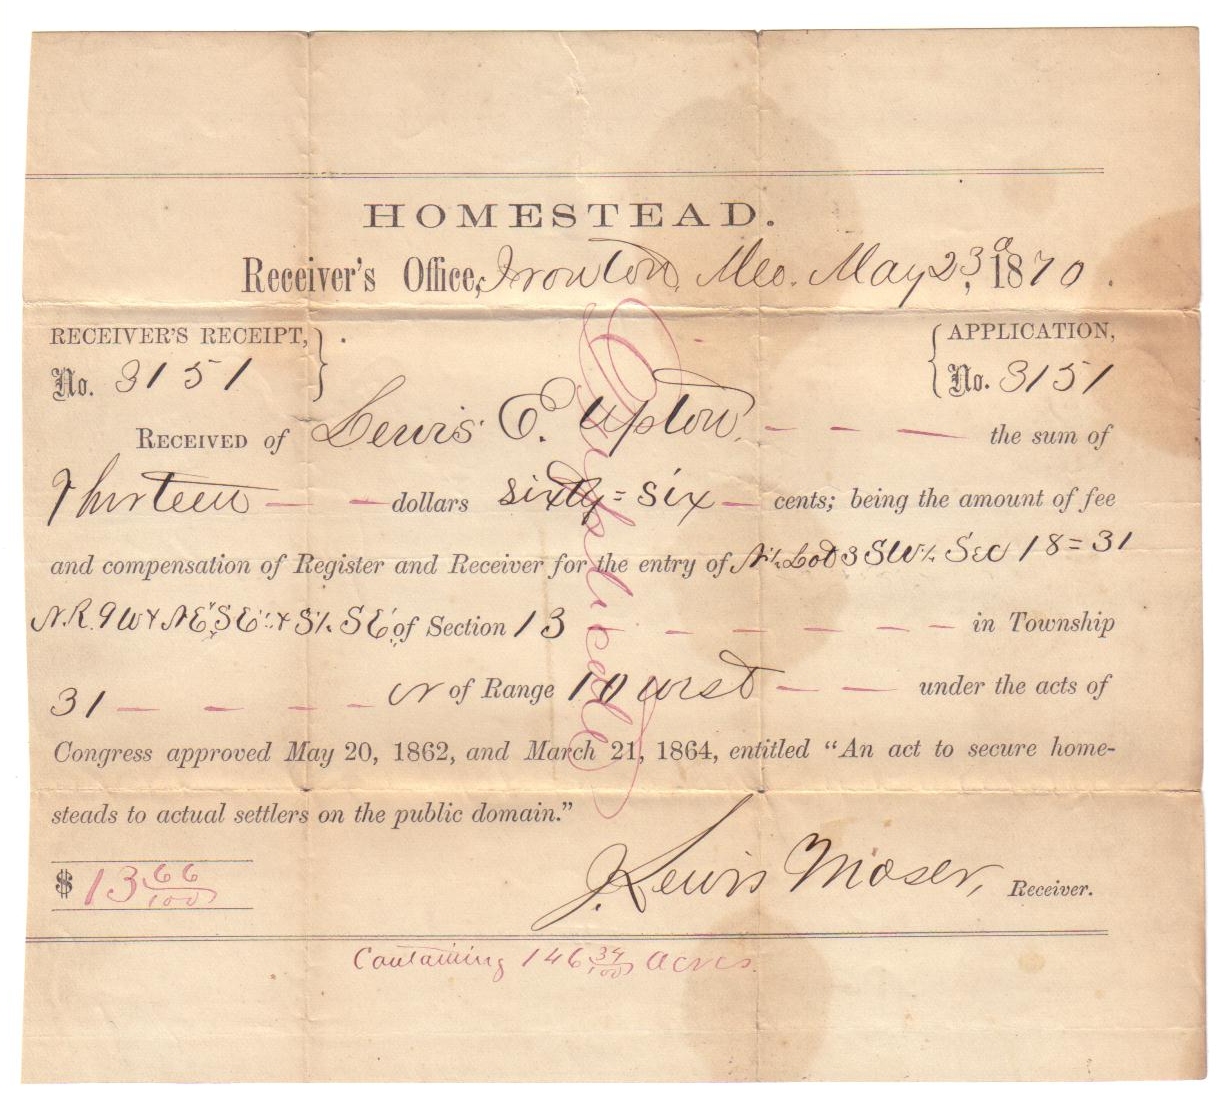 HOMESTEAD.
Receiver's Office, Ironton, Mo. May 23d, 1870.
RECEIVER'S RECEIPT, No. 3151
APPLICATION, No. 3151
RECEIVED of Lewis E. Upton, — — — the sum of
Thirteen — — dollars sixty=six — cents; being the amount of fee
and compensation of Register and Receiver for the entry of N½ Lot 3 SW¼ Sec 18=31
N.R. 9 W & NE SE¼ & S½ SE of Section 13
— — — — — — in Township
31 — — — — N of Range 10 west — — under the acts of
Congress approved May 20, 1862, and March 21, 1864, entitled "An act to secure home-
steads to actual settlers on the public domain."
Duplicate
$ 13 66/100
J. Lewis Moser, Receiver.
Containing 146 34/100 acres.